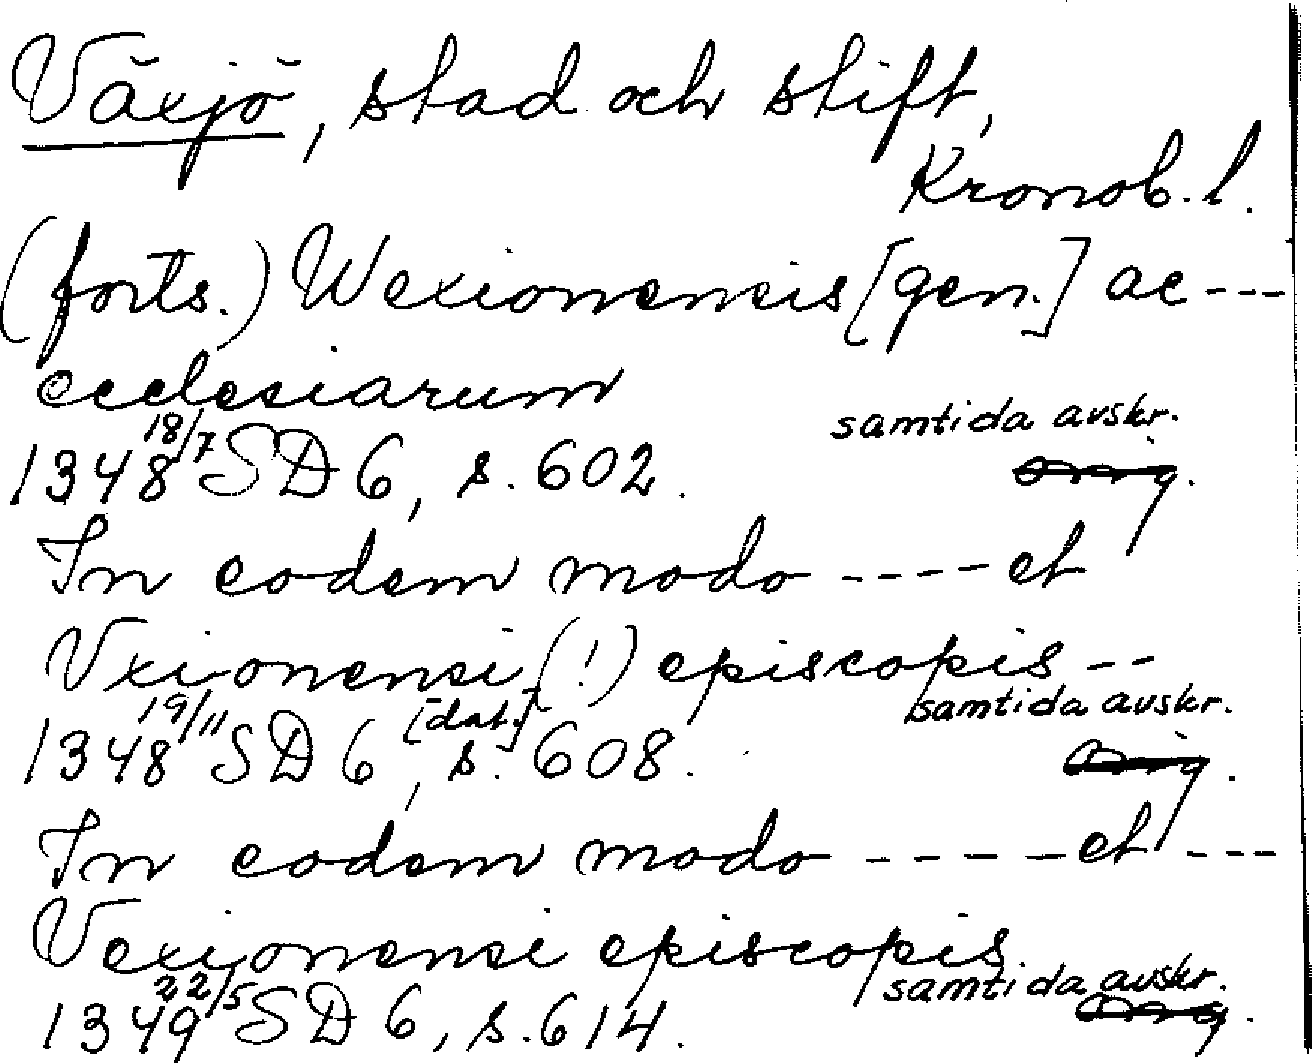 Växjö, stad och stift,
Kronob. l.
(forts.) Wexionensis [gen.] ac ---
ecclesiarum
samtida avskr.
1348 18/7 SD 6, s. 602. orig.
In eodem modo ---- et
Vxionensi (!) episcopis --
[dat.] samtida avskr.
1348 19/11 SD 6, s. 608. orig.
In eodem modo ----- et ---
Vexionensi episcopis.
samtida avskr.
1349 22/5 SD 6, s. 614. orig.